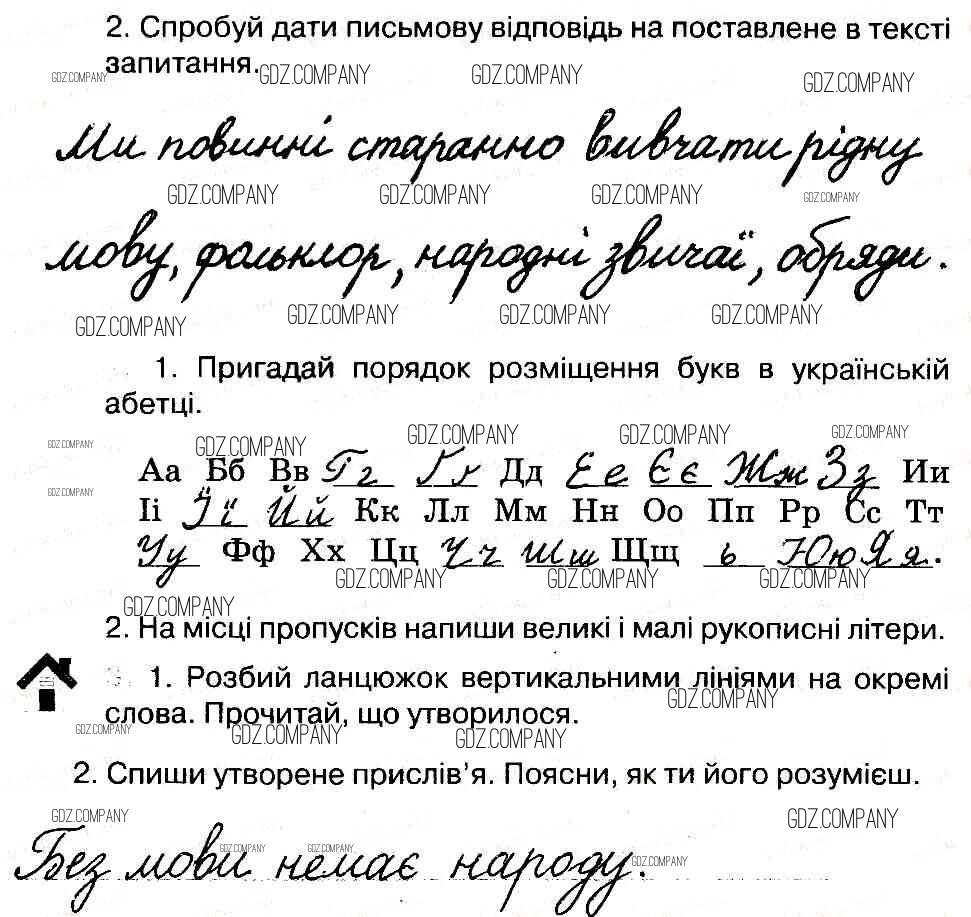 2. Спробуй дати письмову відповідь на поставлене в тексті
запитання.
GDZ.COMPANY GDZ.COMPANY GDZ.COMPANY GDZ.COMPANY
Ми повинні старанно вивчати рідну
GDZ.COMPANY GDZ.COMPANY GDZ.COMPANY GDZ.COMPANY
мову, фольклор, народні звичаї, обряди.
GDZ.COMPANY GDZ.COMPANY GDZ.COMPANY GDZ.COMPANY
1. Пригадай порядок розміщення букв в українській
абетці.
GDZ.COMPANY GDZ.COMPANY GDZ.COMPANY GDZ.COMPANY GDZ.COMPANY
Аа Бб Вв Гг Ґґ Дд Ее Єє Жж Зз Ии
GDZ.COMPANY
Іі Її Йй Кк Лл Мм Нн Оо Пп Рр Сс Тт
Уу Фф Хх Цц Чч Шш Щщ ь Юю Яя.
GDZ.COMPANY GDZ.COMPANY GDZ.COMPANY
GDZ.COMPANY
2. На місці пропусків напиши великі і малі рукописні літери.
1. Розбий ланцюжок вертикальними лініями на окремі
GDZ.COMPANY
слова. Прочитай, що утворилося.
GDZ.COMPANY GDZ.COMPANY GDZ.COMPANY
2. Спиши утворене прислів’я. Поясни, як ти його розумієш.
GDZ.COMPANY GDZ.COMPANY
Без мови немає народу.
GDZ.COMPANY GDZ.COMPANY GDZ.COMPANY